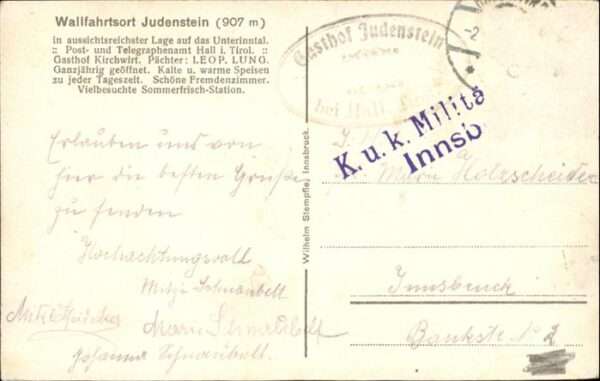 Wallfahrtsort Judenstein (907 m)
in aussichtsreichster Lage auf das Unterinntal.
:: Post- und Telegraphenamt Hall i. Tirol. ::
Gasthof Kirchwirt. Pächter: LEOP. LUNG.
Ganzjährig geöffnet. Kalte u. warme Speisen
zu jeder Tageszeit. Schöne Fremdenzimmer.
Vielbesuchte Sommerfrisch-Station.
Erlauben uns von
hier die besten Grüße
zu senden
Hochachtungsvoll
Mitzi Schnaubelt
Marie Schnaubelt
Johanna Schnaubelt.
Wilhelm Stempfle, Innsbruck.
Gasthof Judenstein
bei Hall,
2
K. u. k. Militä
Innsb
Holzscheiter
Innsbruck
N° 2